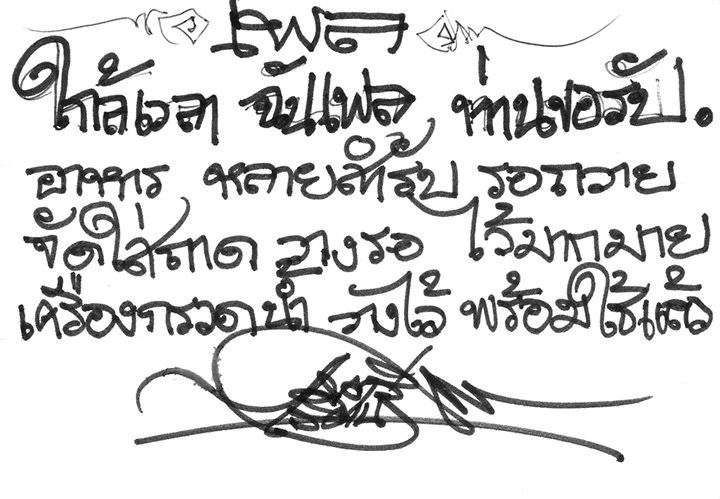 เพล
ใกล้เวลา ฉันเพล ท่านขอรับ.
อาหาร หลายสำรับ รอถวาย
จัดใส่ถาด วางรอ ไว้มากมาย
เครื่องกรวดน้ำ วางไว้ พร้อมใช้แล้ว